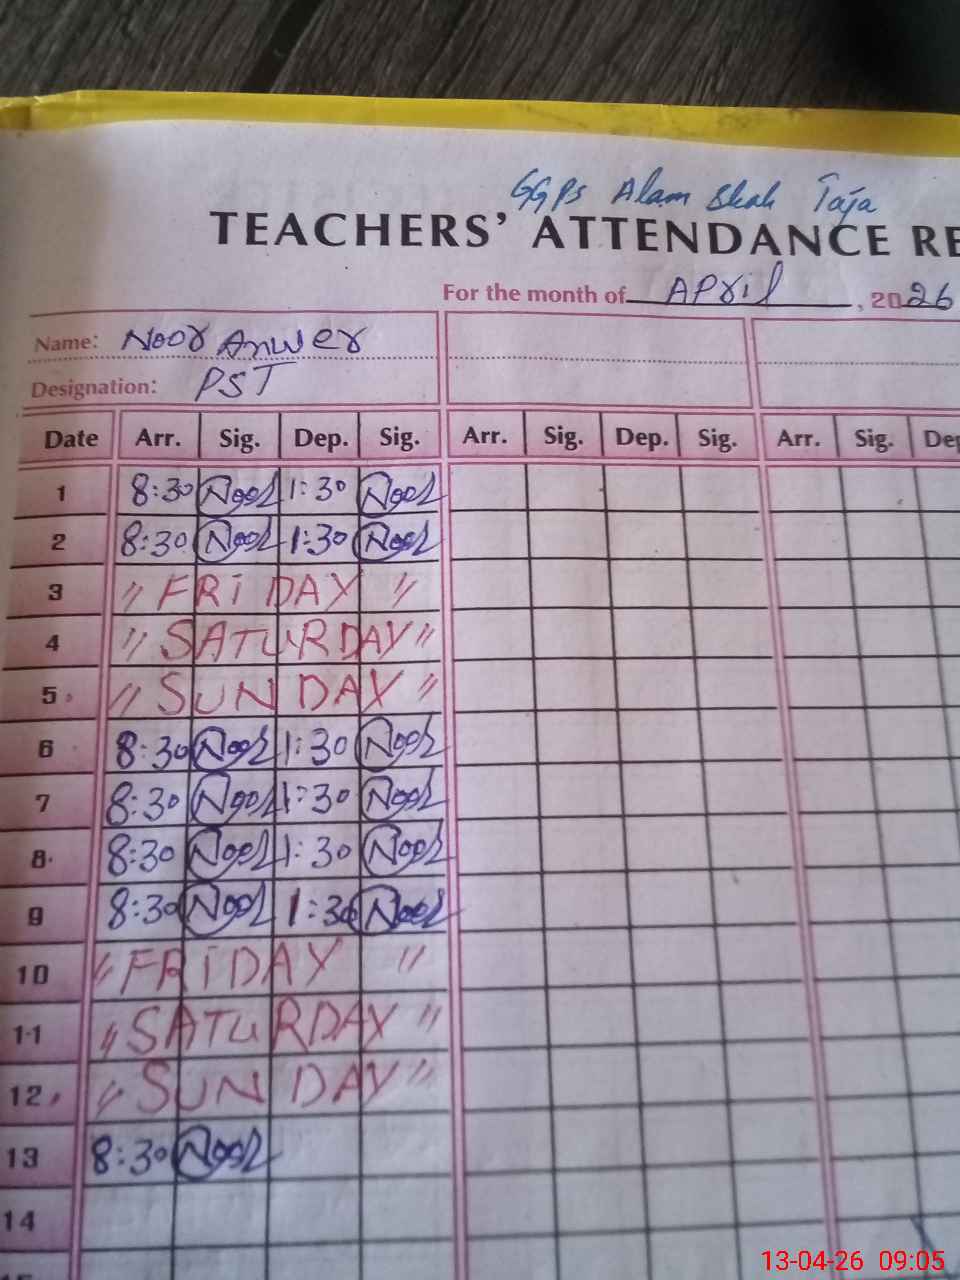 GGPS Alam Shah Taja
TEACHERS' ATTENDANCE RE
For the month of April, 2026
Name: Noor Anwer
Designation: PST
Date Arr. Sig. Dep. Sig. Arr. Sig. Dep. Sig. Arr. Sig. De
1 8:30 Noor 1:30 Noor
2 8:30 Noor 1:30 Noor
3 "FRiDAY"
4 "SATURDAY"
5 "SUNDAY"
6 8:30 Noor 1:30 Noor
7 8:30 Noor 1:30 Noor
8 8:30 Noor 1:30 Noor
9 8:30 Noor 1:30 Noor
10 "FRiDAY"
11 "SATURDAY"
12 "SUNDAY"
13 8:30 Noor
14
13-04-26 09:05